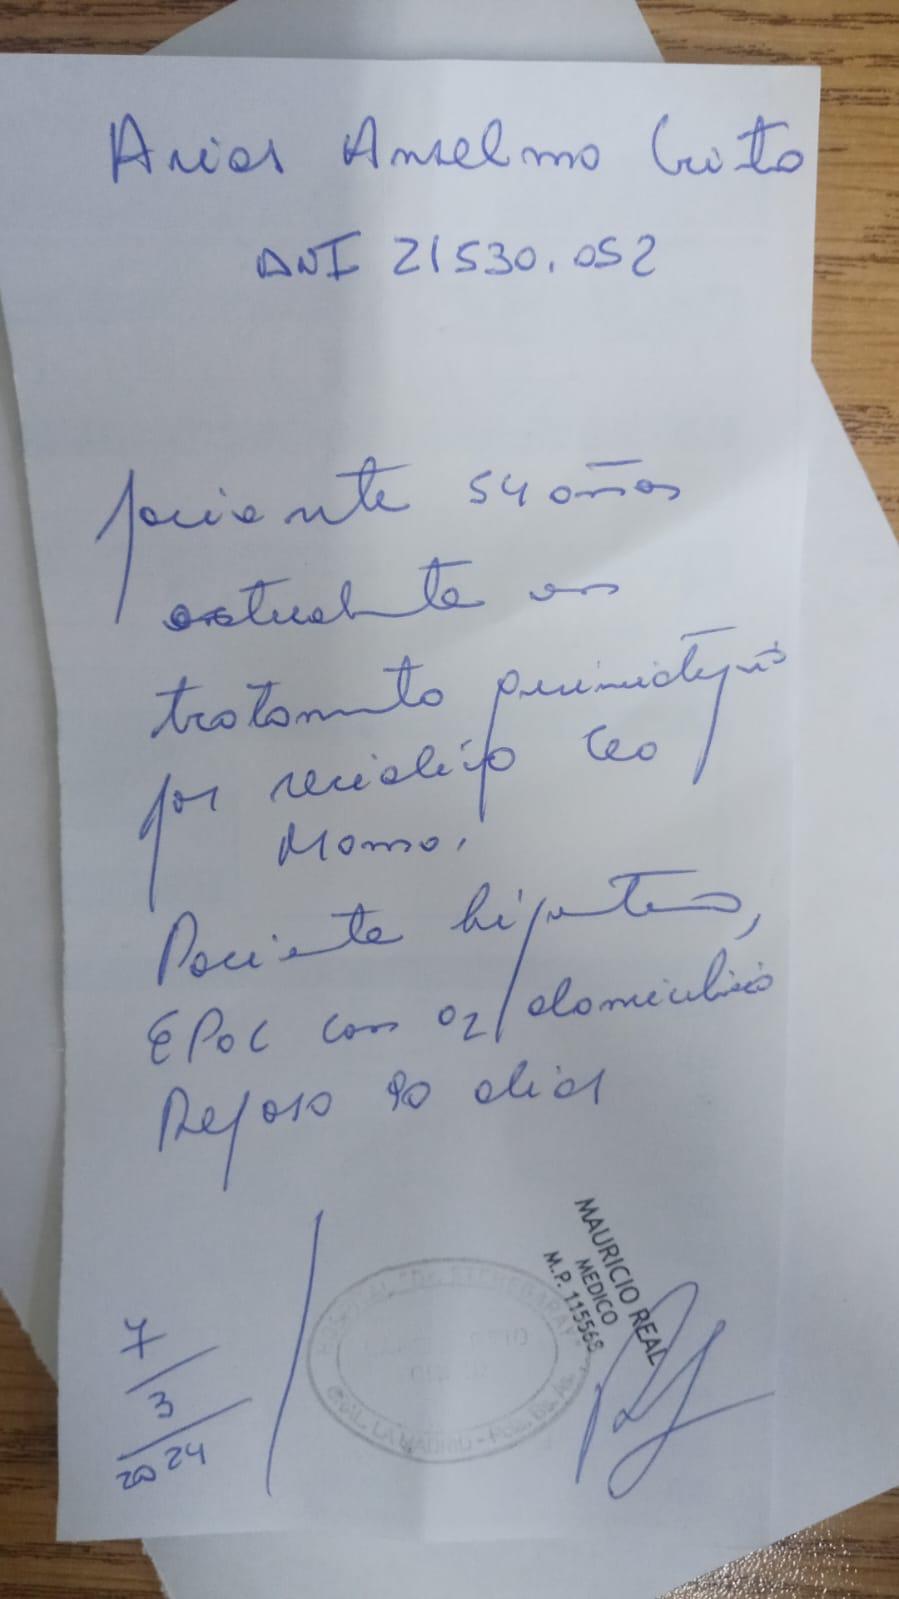 Arias Anselmo Cristo
DNI 21530.052
paciente 54 años
actualmente en
tratamiento quimioterapico
por recidiva Ca
Mama.
Paciente hipertenso,
EPOC con O2 domiciliario
Reposo 90 dias
MAURICIO REAL
MEDICO
M.P. 115568
HOSPITAL ETCHEGARAY
GRAL. LA MADRID - Pcia. Bs. As.
7/3/2024